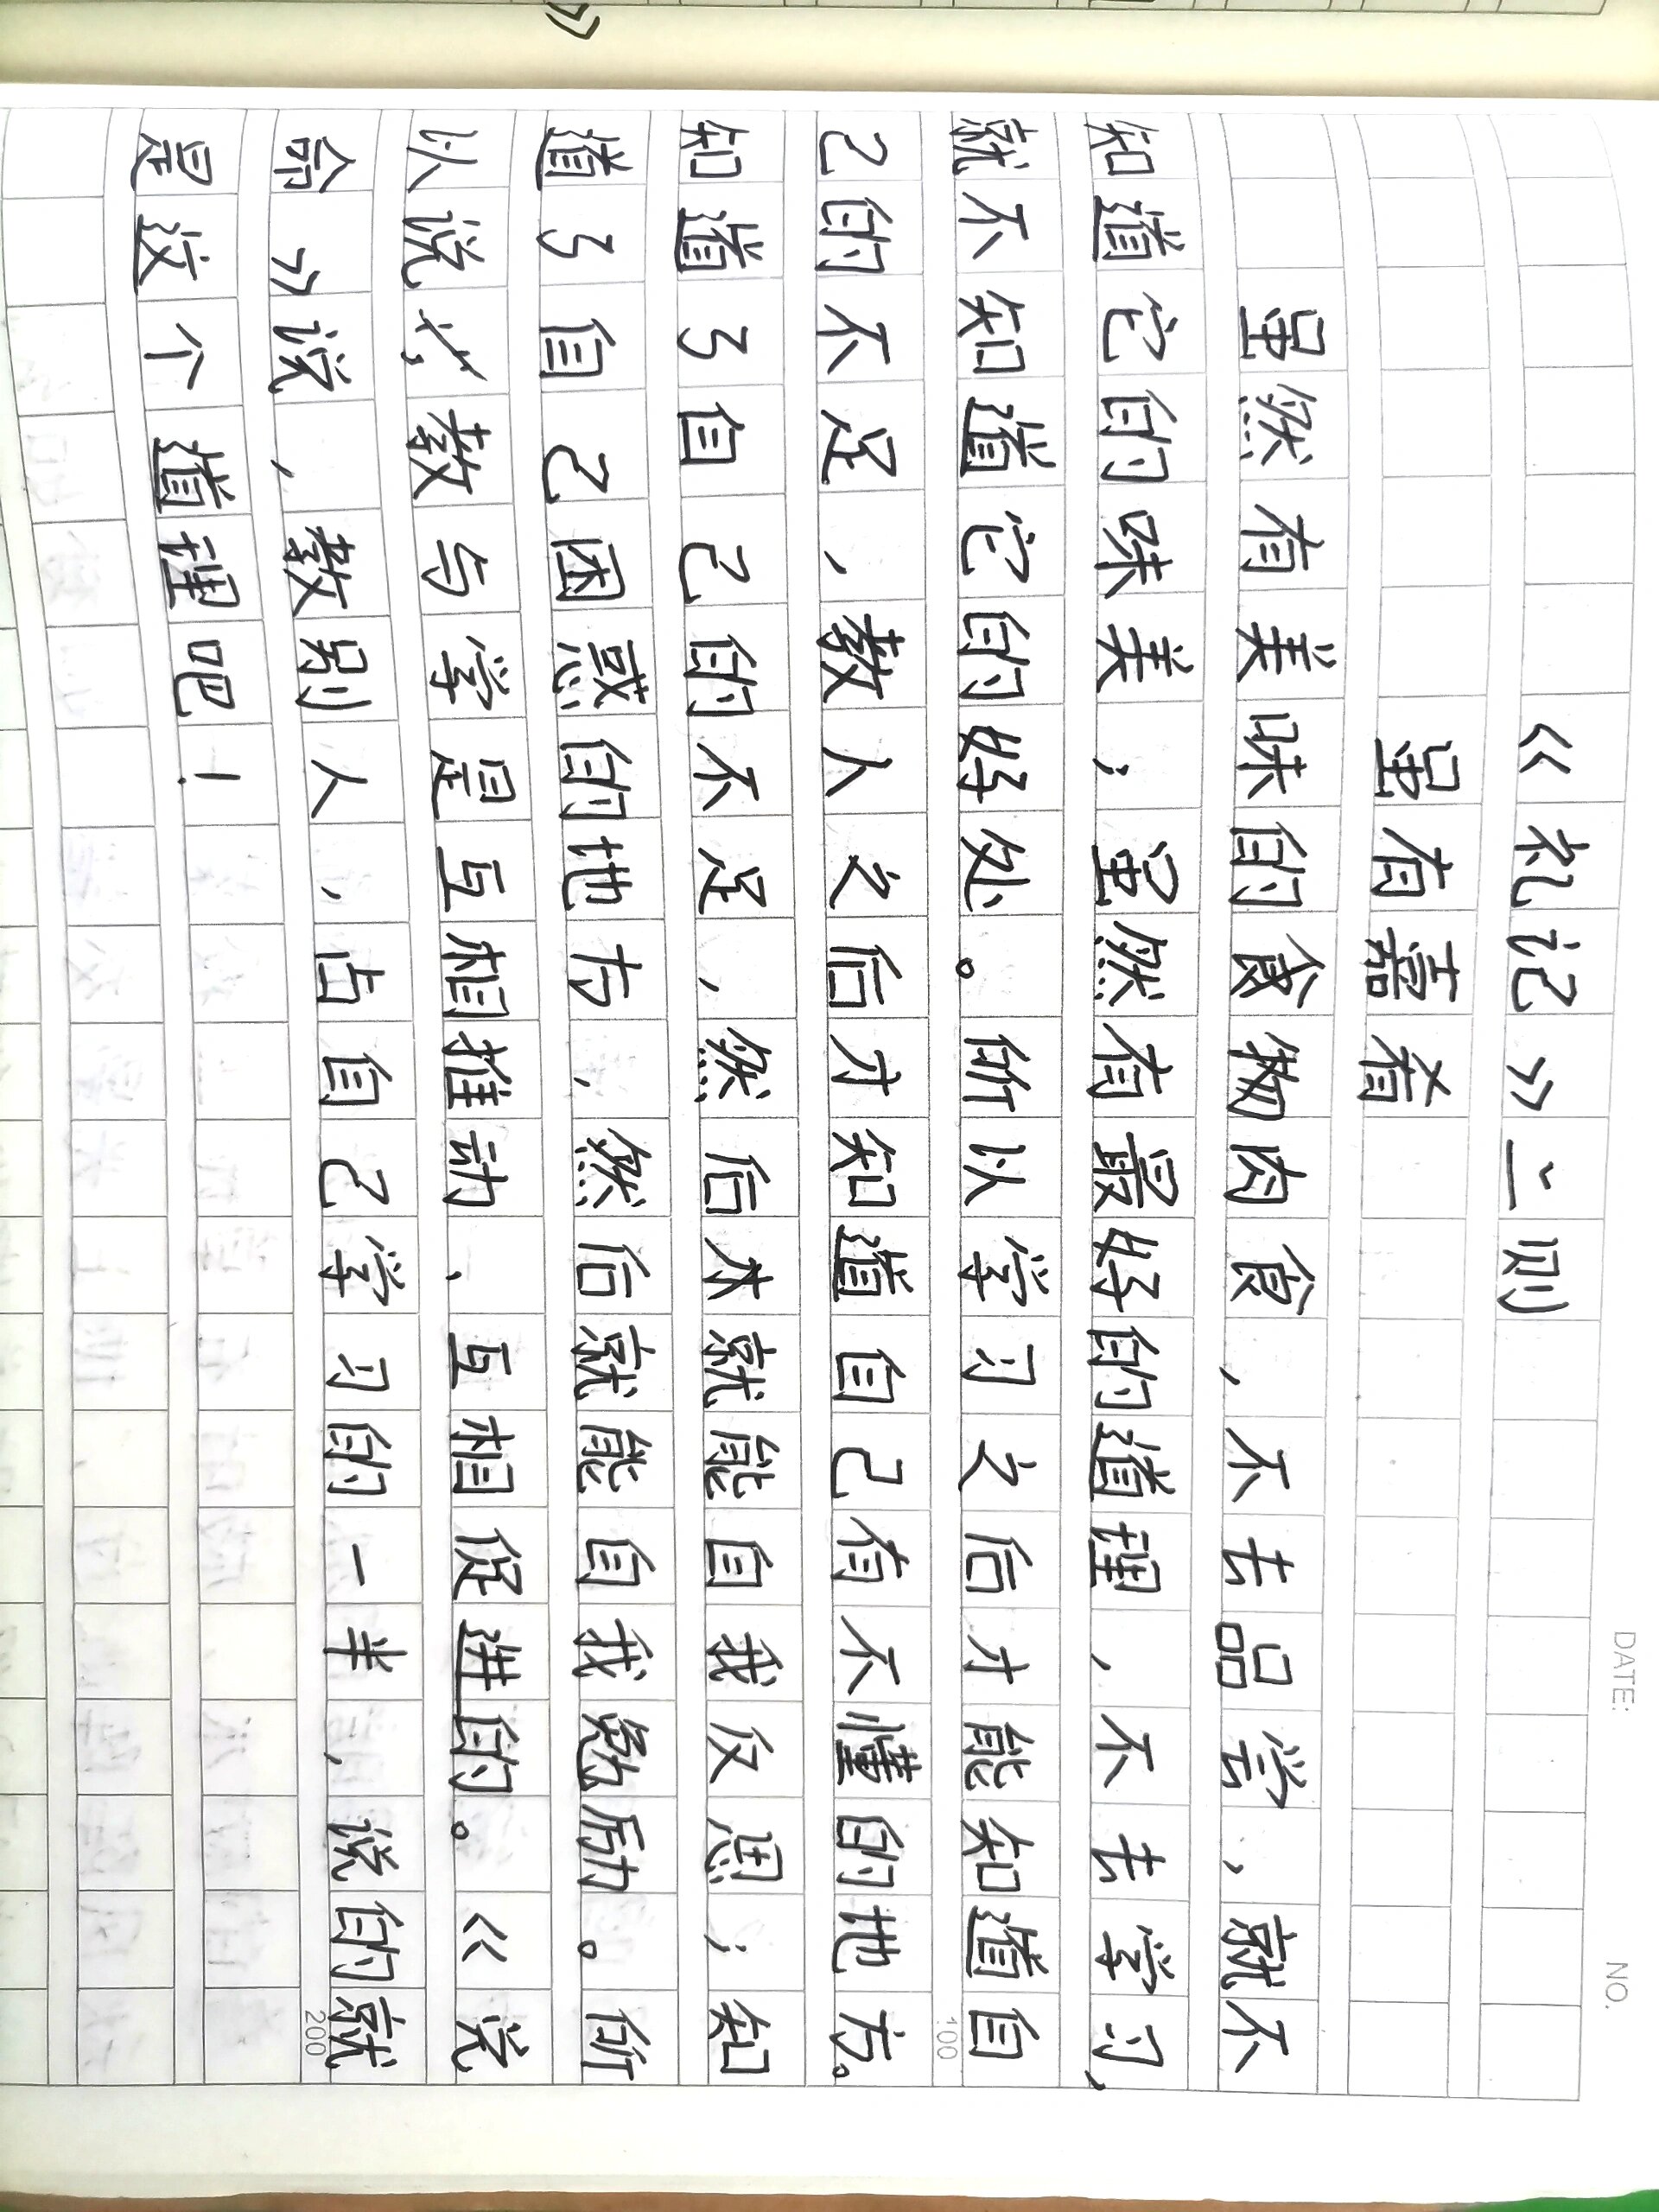 《礼记》二则
虽有嘉肴
虽然有美味的食物肉食，不去品尝，就不
知道它的味美；虽然有最好的道理，不去学习，
就不知道它的好处。所以学习之后才能知道自
己的不足，教人之后才知道自己有不懂的地方。
知道了自己的不足，然后才就能自我反思；知
道了自己困惑的地方，然后就能自我勉励。所
以说教与学是互相推动、互相促进的。《说
命》说，教别人，占自己学习的一半，说的就
是这个道理吧！
DATE:
NO.
100
200
》